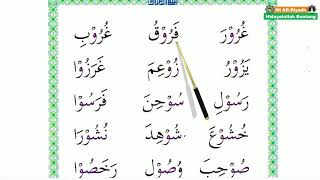 MI AR-Riyadh
Hidayatullah Bontang
غُرُوْرَ فَرُوْقُ غُرُوْبِ
يَزُوْرُ زُوْعِمَ غَرَزُوْا
رَسُوْلِ سُوْحِنَ فَرَسُوْا
خُشُوْعَ شُوْهِدَ نُشُوْرَا
صُوْحِبَ وُصُوْلِ رَخَصُوْا